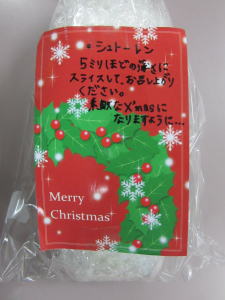 ・シュトーレン
5ミリほどの薄さに
スライスして、お召し上がり
ください。
素敵なX'masに
なりますように…
Merry
Christmas